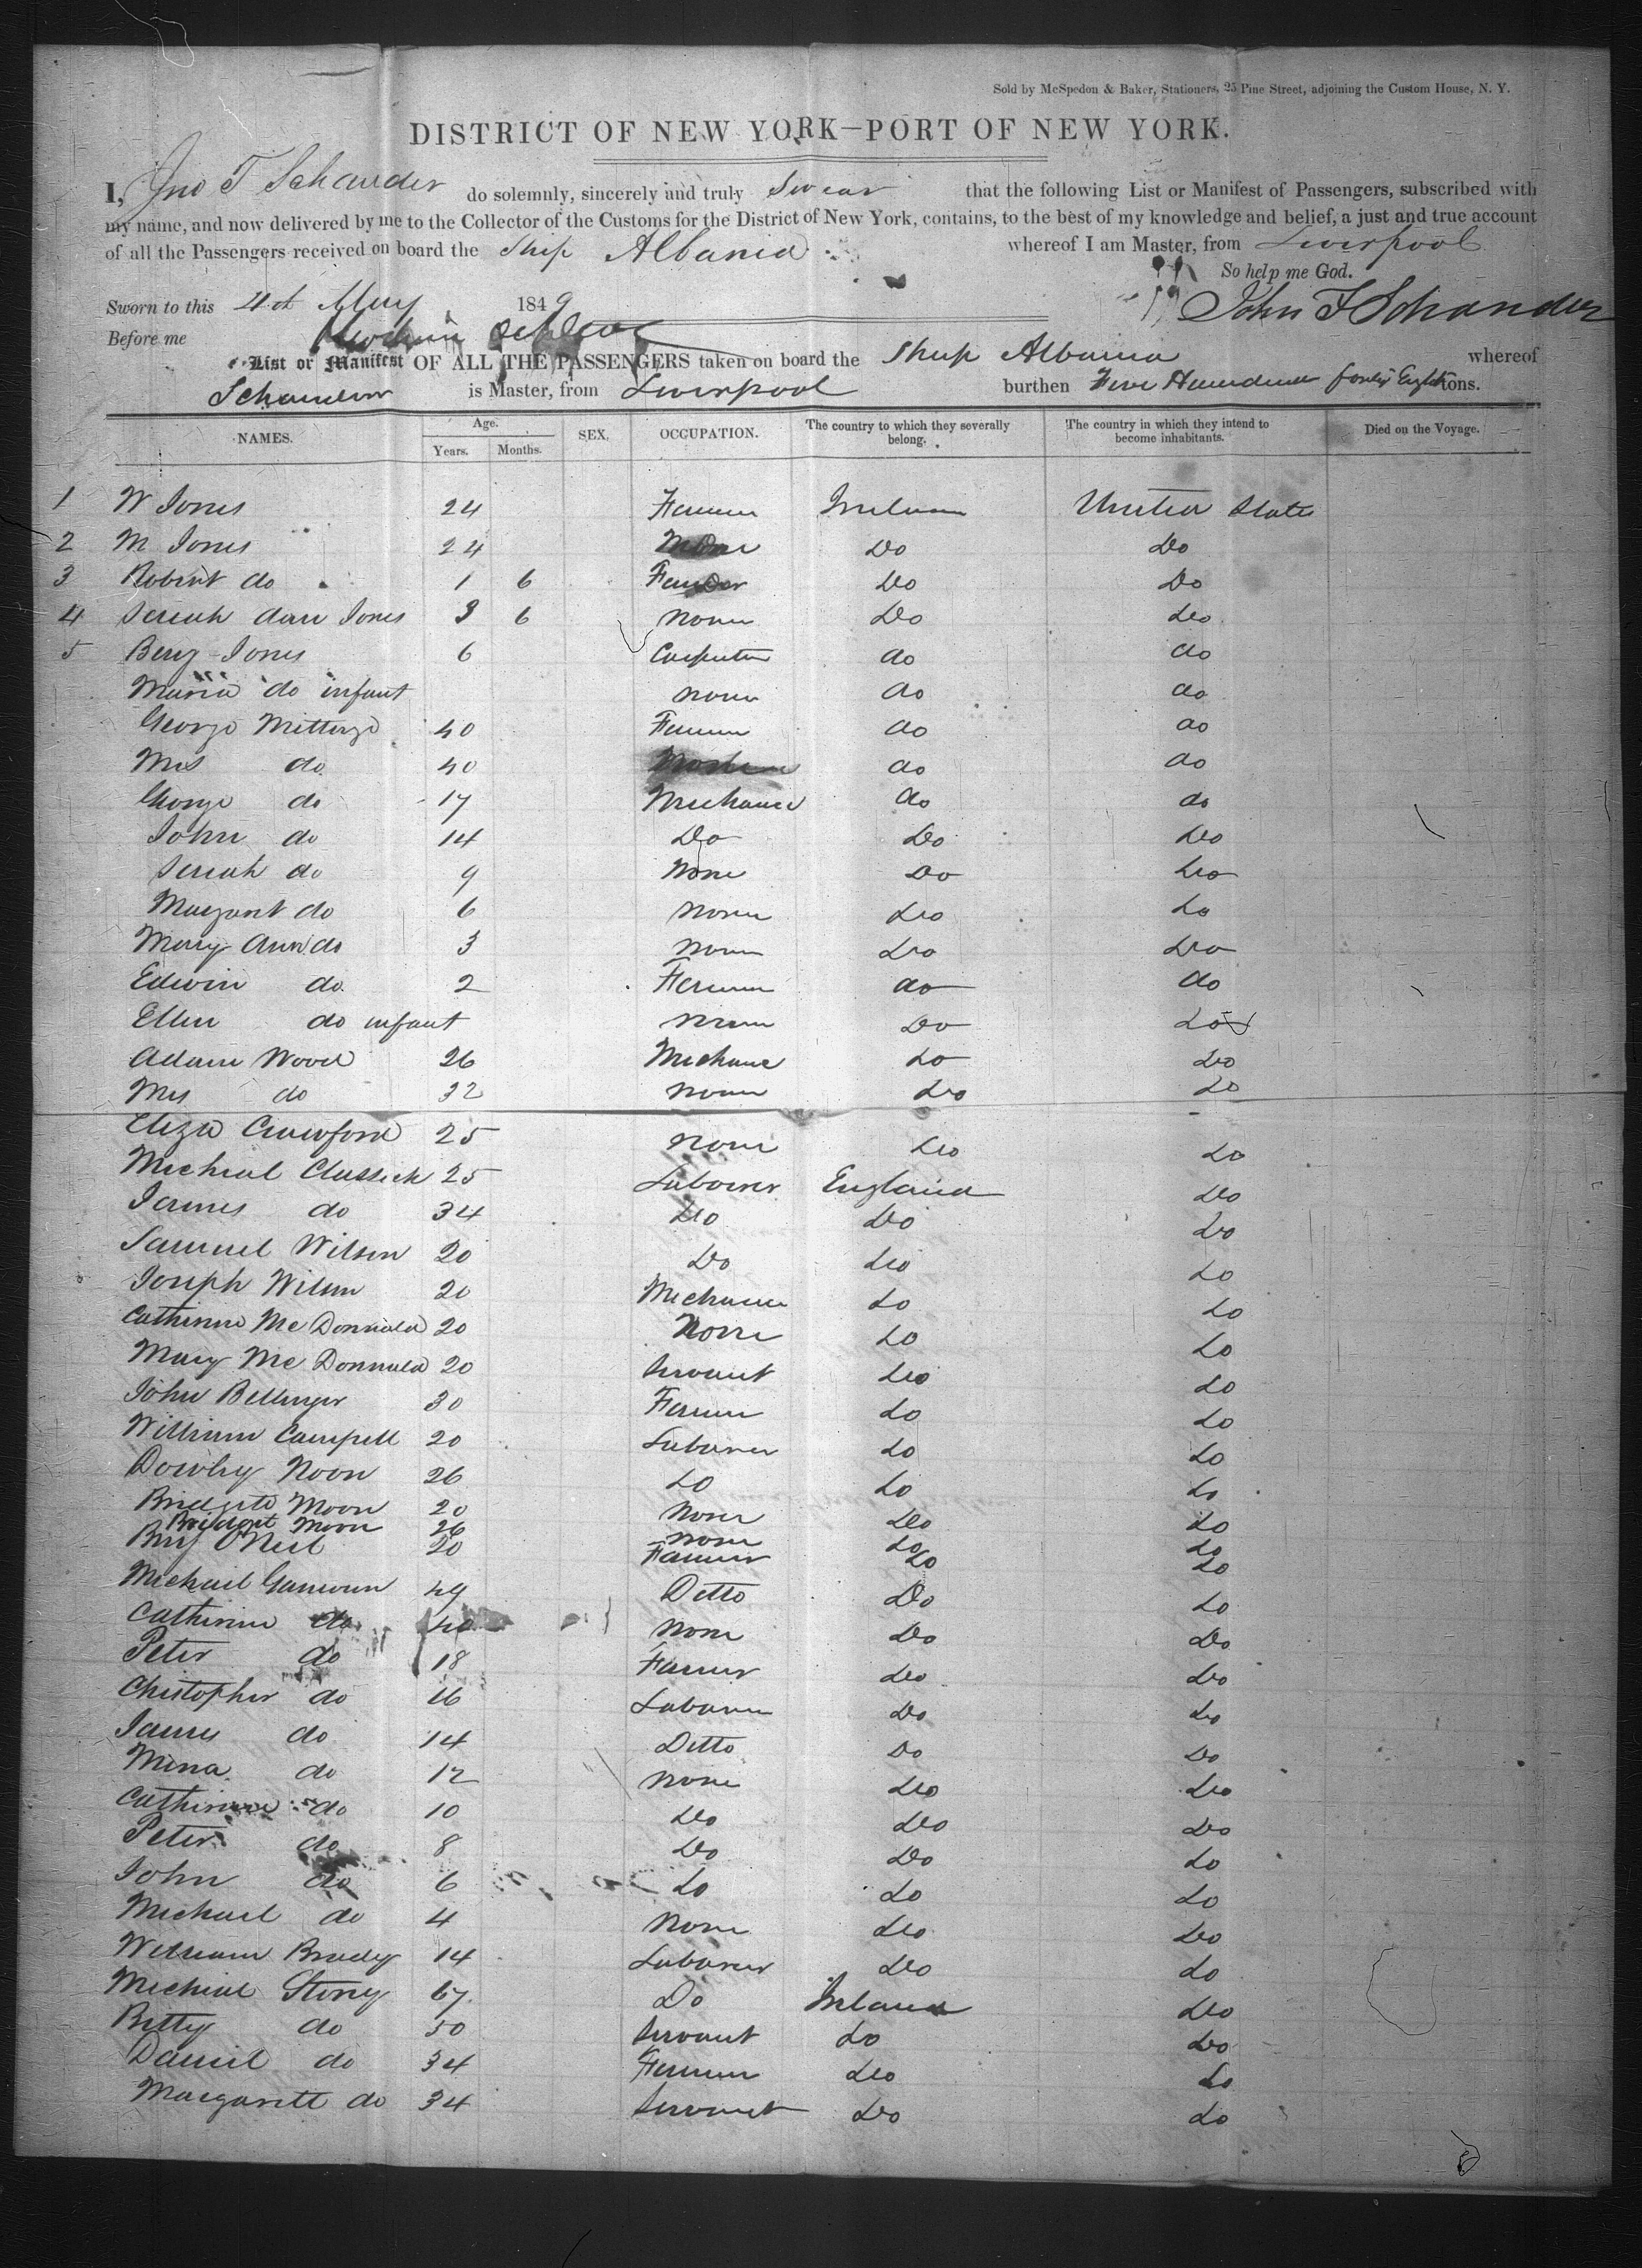 Sold by McSpedon & Baker, Stationers, 25 Pine Street, adjoining the Custom House, N. Y.
DISTRICT OF NEW YORK—PORT OF NEW YORK.
I, Jno T Schander do solemnly, sincerely and truly Swear that the following List or Manifest of Passengers, subscribed with
my name, and now delivered by me to the Collector of the Customs for the District of New York, contains, to the best of my knowledge and belief, a just and true account
of all the Passengers received on board the Ship Albania whereof I am Master, from Liverpool
So help me God.
Sworn to this May 1849 John F Schander
Before me
List or Manifest OF ALL THE PASSENGERS taken on board the Ship Albania whereof
Schander is Master, from Liverpool burthen Five Hundred forty Eight tons.
NAMES. Age. Years. Months. SEX. OCCUPATION. The country to which they severally belong. The country in which they intend to become inhabitants. Died on the Voyage.
1 W Jones 24 Farmer Ireland United States
2 M Jones 24 None Do Do
3 Robert do 1 6 Do Do
4 Sarah Jones 3 6 None Do Do
5 Benj Jones 6 Carpenter do do
Maria do infant none do do
George 40 Farmer do do
Mrs do 40 do do
George do 17 Mechanic do do
John do 14 Do Do Do
Sarah do 9 None Do Do
Margaret do 6 None Do Do
Mary Ann do 3 None Do Do
Edwin do 2 Farmer do do
Ellen do infant None Do Do
Adam Wood 26 Mechanic Do Do
Mrs do 32 None Do Do
Eliza Crawford 25 None Do Do
Micheal Clussick 25 Laborer England Do
James do 34 Do Do Do
Samuel Wilson 20 Do Do Do
Joseph Wilson 20 Mechanic Do Do
Catherine McDonnald 20 None Do Do
Mary McDonnald 20 Servant Do Do
John Bellinger 30 Farmer Do Do
William Campell 20 Laborer Do Do
Noon 26 Do Do Do
Bridgett Moon 20 None Do Do
Bridget Moon 26 None Do Do
O'Neil 20 Farmer Do Do
Michael 49 Ditto Do Do
Catherine do 40 None Do Do
Peter do 18 Farmer Do Do
Christopher do 16 Laborer Do Do
James do 14 Ditto Do Do
Mina do 12 None Do Do
Catherine do 10 Do Do Do
Peter do 8 Do Do Do
John do 6 Do Do Do
Michael do 4 None Do Do
William Brady 14 Laborer Do Do
Micheal Story 67 Do Ireland Do
Betty do 50 Servant Do Do
Daniel do 34 Farmer Do Do
Margarett do 34 Servant Do Do